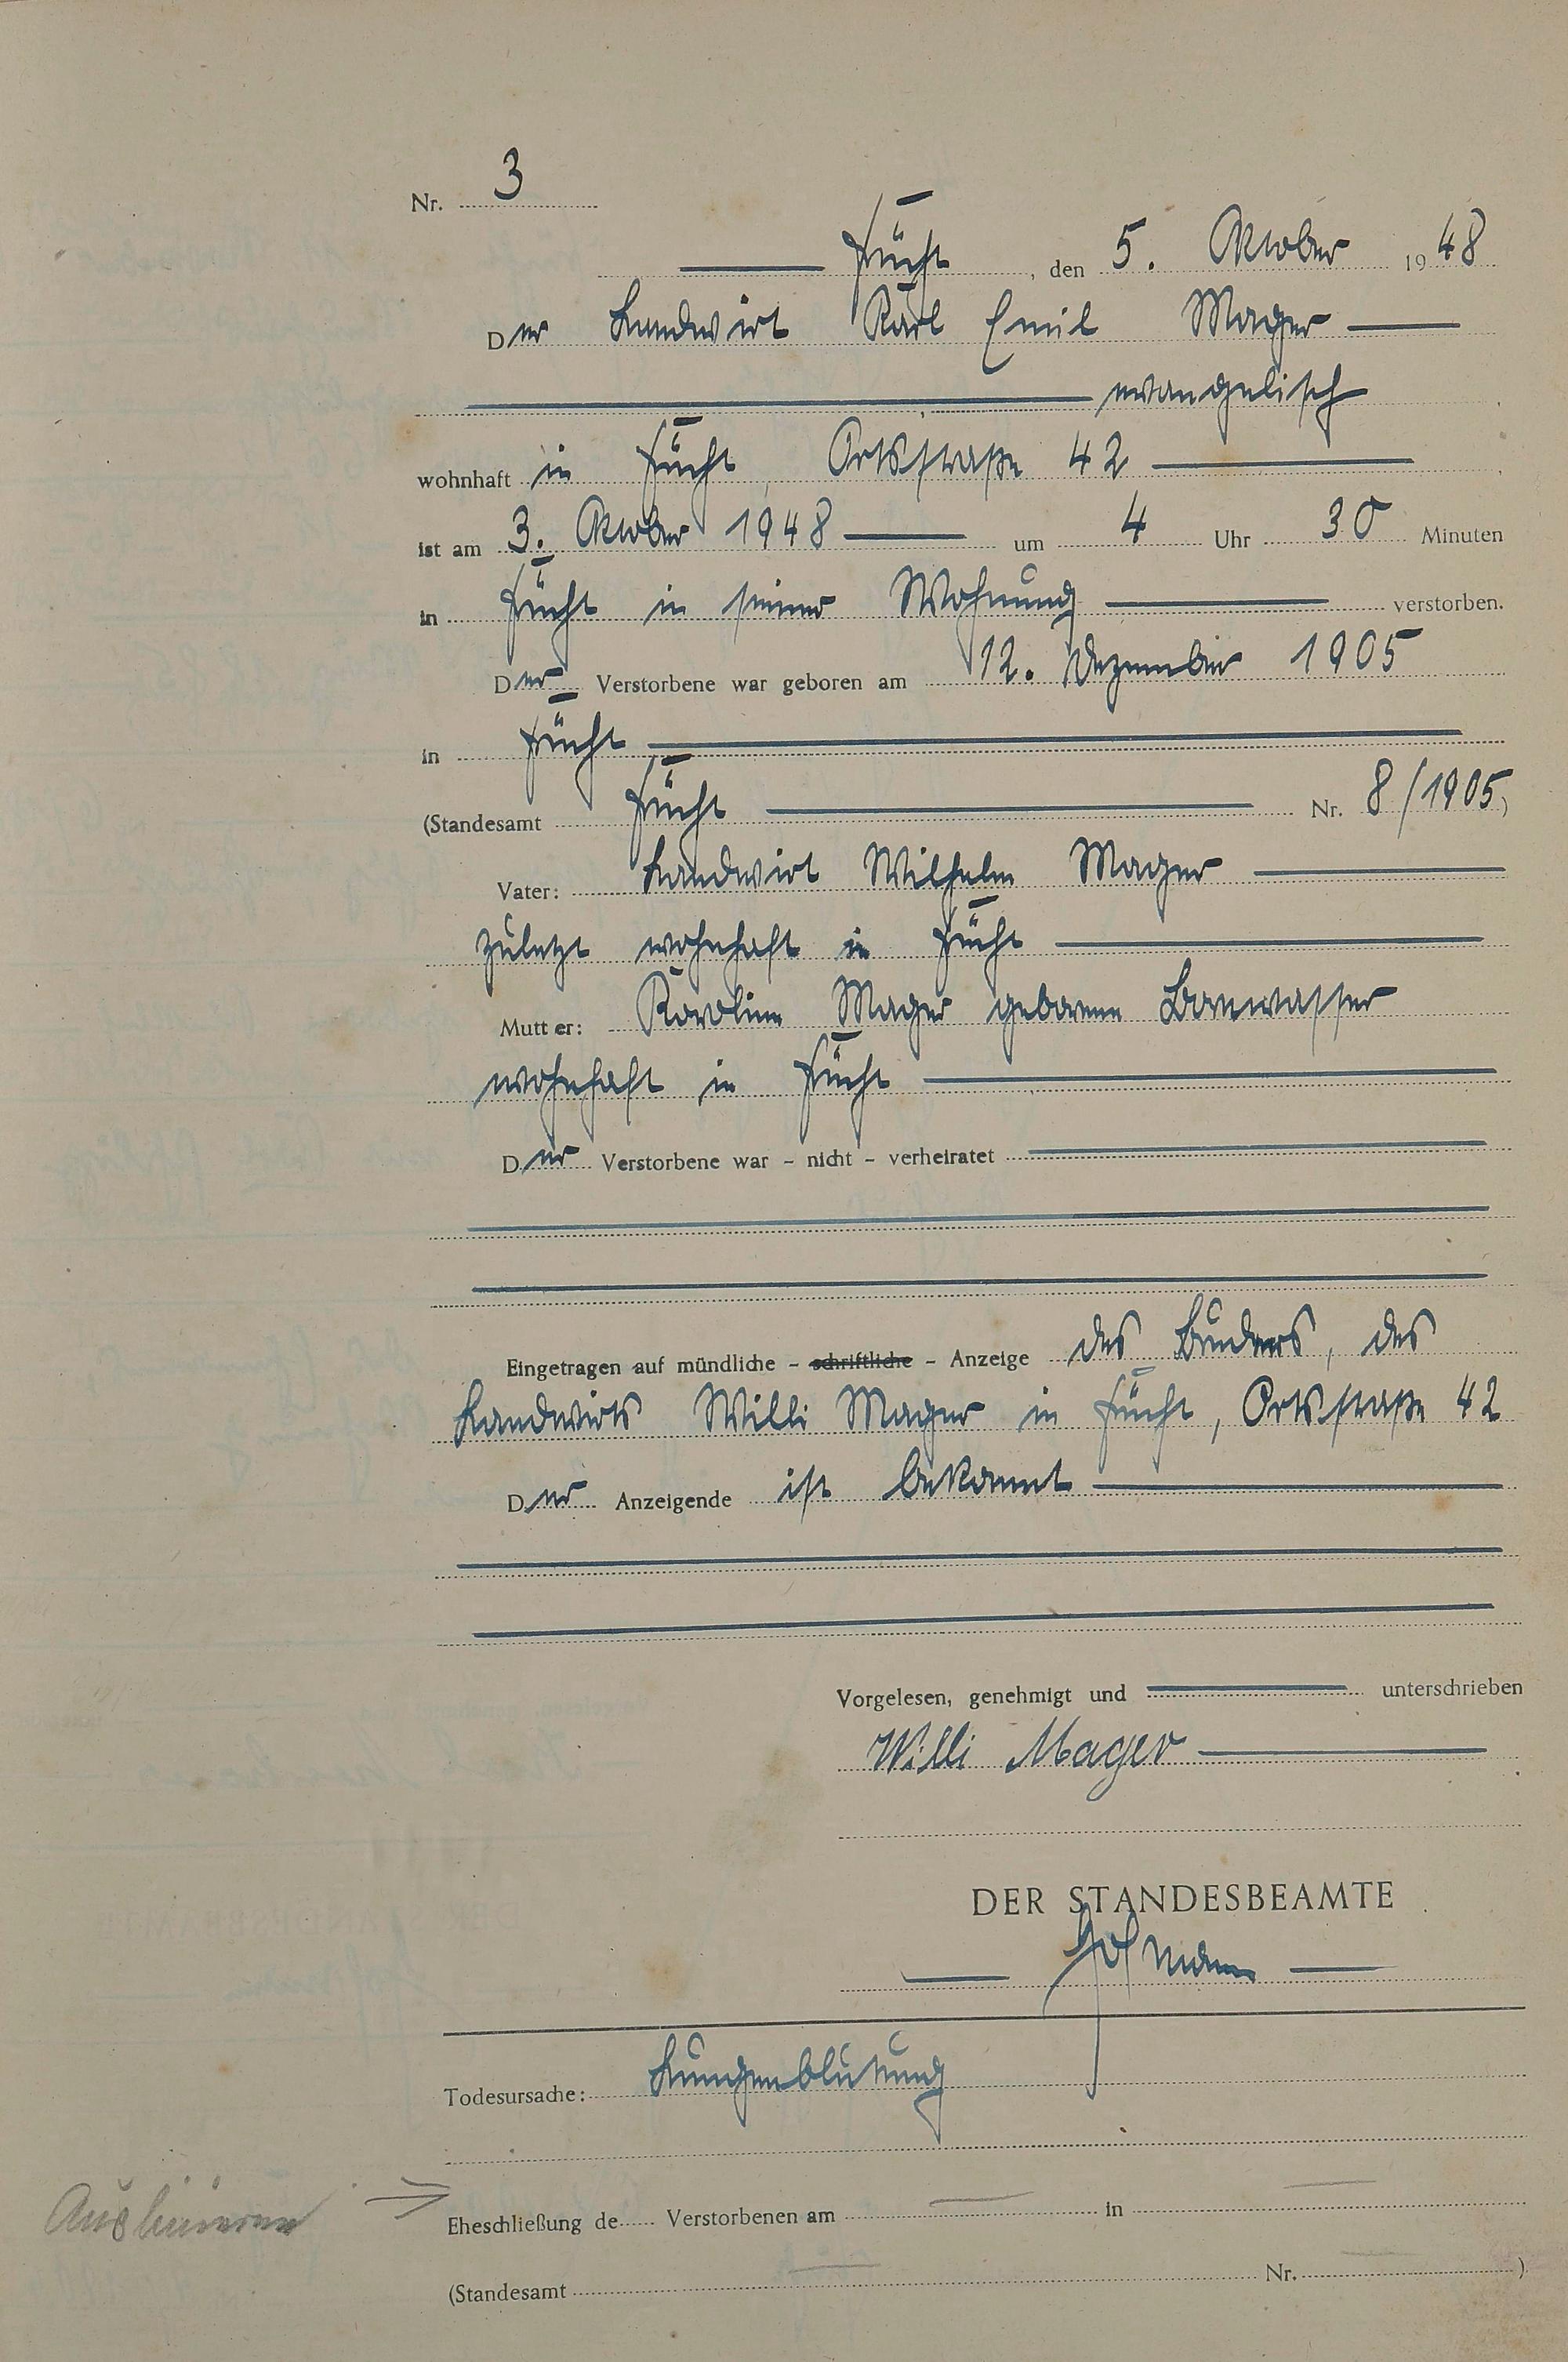 Nr. 3
Frücht, den 5. Oktober 1948
Der Landwirt Karl Emil Mager
evangelisch
wohnhaft in Frücht, Ortsstraße 42
ist am 3. Oktober 1948 um 4 Uhr 30 Minuten
in Frücht in seiner Wohnung verstorben.
Der Verstorbene war geboren am 12. Dezember 1905
in Frücht
(Standesamt Frücht Nr. 8/1905)
Vater: Landwirt Wilhelm Mager
zuletzt wohnhaft in Frücht
Mutter: Karoline Mager geborene Bonewasser
wohnhaft in Frücht
Der Verstorbene war - nicht - verheiratet
Eingetragen auf mündliche - schriftliche - Anzeige des Bruders, des
Landwirts Willi Mager in Frücht, Ortsstraße 42
Der Anzeigende ist bekannt
Vorgelesen, genehmigt und unterschrieben
Willi Mager
DER STANDESBEAMTE
Hofmann
Todesursache: Lungenblutung
Eheschließung de Verstorbenen am in
(Standesamt Nr. )